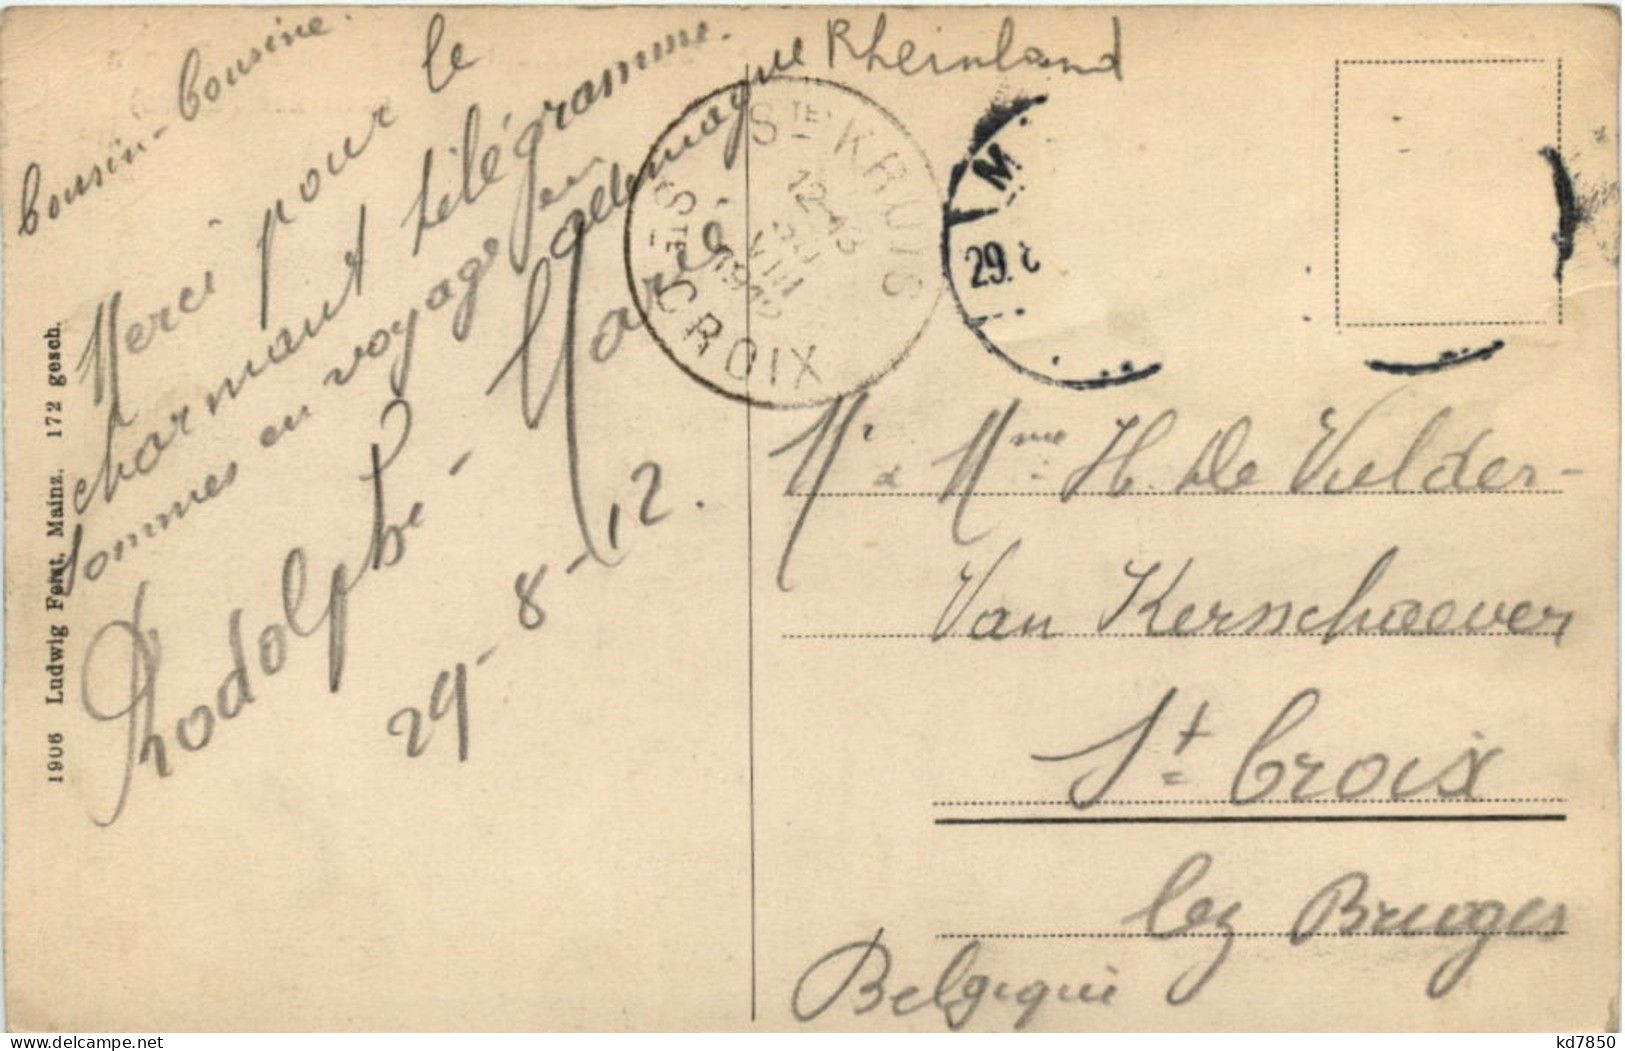 Cousin-Cousine.
Merci pour le
charmant télégramme.
Sommes en voyage en allemagne Rheinland
Rodolphe - Marie.
29-8-12.
1906 Ludwig Feist, Mainz. 172 gesch.
STE KRUIS
12-13
VIII
1912
STE CROIX
M
29.8
Mr & Mme H. De Vielder-
Van Kersschaever
St Croix
lez Bruges
Belgique
kd7850